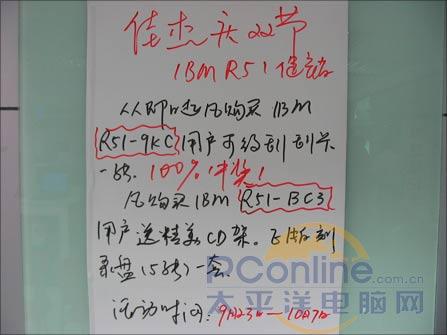 佳杰庆双节
IBM R51促销
从即日起凡购买IBM
R51-9KC用户可得刮刮卡
一张. 100%中奖!
凡购买IBM R51-BC3
用户送精美CD架。飞梭刻
录盘(5张)一套.
活动时间:9月23日—10月7日
PConline.com.cn
太平洋电脑网